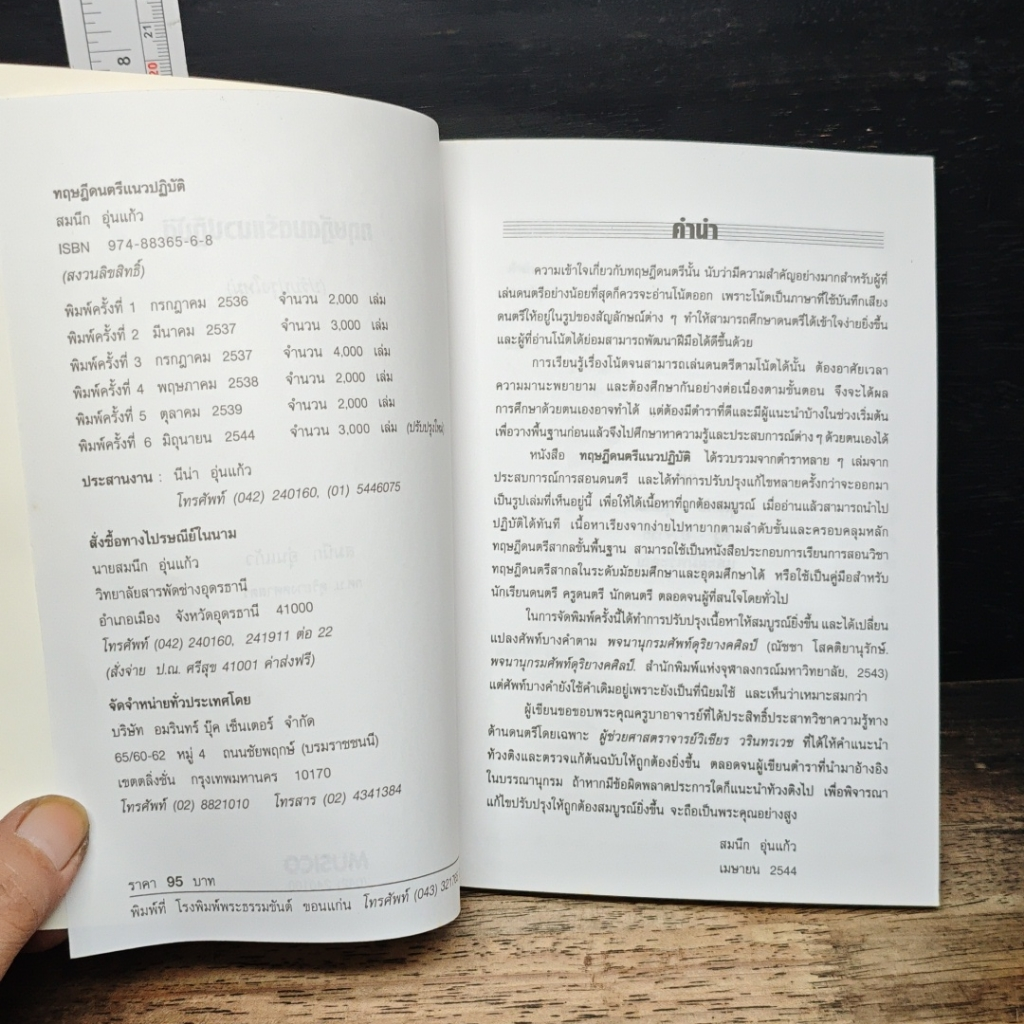 8
21
20
ทฤษฎีดนตรีแนวปฏิบัติ
สมนึก อุ่นแก้ว
ISBN 974-88365-6-8
(สงวนลิขสิทธิ์)
พิมพ์ครั้งที่ 1 กรกฎาคม 2536 จำนวน 2,000 เล่ม
พิมพ์ครั้งที่ 2 มีนาคม 2537 จำนวน 3,000 เล่ม
พิมพ์ครั้งที่ 3 กรกฎาคม 2537 จำนวน 4,000 เล่ม
พิมพ์ครั้งที่ 4 พฤษภาคม 2538 จำนวน 2,000 เล่ม
พิมพ์ครั้งที่ 5 ตุลาคม 2539 จำนวน 2,000 เล่ม
พิมพ์ครั้งที่ 6 มิถุนายน 2544 จำนวน 3,000 เล่ม (ปรับปรุงใหม่)
ประสานงาน : นีน่า อุ่นแก้ว
โทรศัพท์ (042) 240160, (01) 5446075
สั่งซื้อทางไปรษณีย์ในนาม
นายสมนึก อุ่นแก้ว
วิทยาลัยสารพัดช่างอุดรธานี
อำเภอเมือง จังหวัดอุดรธานี 41000
โทรศัพท์ (042) 240160, 241911 ต่อ 22
(สั่งจ่าย ป.ณ. ศรีสุข 41001 ค่าส่งฟรี)
จัดจำหน่ายทั่วประเทศโดย
บริษัท อมรินทร์ บุ๊ค เซ็นเตอร์ จำกัด
65/60-62 หมู่ 4 ถนนชัยพฤกษ์ (บรมราชชนนี)
เขตตลิ่งชั่น กรุงเทพมหานคร 10170
โทรศัพท์ (02) 8821010 โทรสาร (02) 4341384
ราคา 95 บาท
พิมพ์ที่ โรงพิมพ์พระธรรมขันต์ ขอนแก่น โทรศัพท์ (043)
คำนำ
ความเข้าใจเกี่ยวกับทฤษฎีดนตรีนั้น นับว่ามีความสำคัญอย่างมากสำหรับผู้ที่
เล่นดนตรีอย่างน้อยที่สุดก็ควรจะอ่านโน้ตออก เพราะโน้ตเป็นภาษาที่ใช้บันทึกเสียง
ดนตรีให้อยู่ในรูปของสัญลักษณ์ต่าง ๆ ทำให้สามารถศึกษาดนตรีได้เข้าใจง่ายยิ่งขึ้น
และผู้ที่อ่านโน้ตได้ย่อมสามารถพัฒนาฝีมือได้ดีขึ้นด้วย
การเรียนรู้เรื่องโน้ตจนสามารถเล่นดนตรีตามโน้ตได้นั้น ต้องอาศัยเวลา
ความมานะพยายาม และต้องศึกษากันอย่างต่อเนื่องตามขั้นตอน จึงจะได้ผล
การศึกษาด้วยตนเองอาจทำได้ แต่ต้องมีตำราที่ดีและมีผู้แนะนำบ้างในช่วงเริ่มต้น
เพื่อวางพื้นฐานก่อนแล้วจึงไปศึกษาหาความรู้และประสบการณ์ต่าง ๆ ด้วยตนเองได้
หนังสือ ทฤษฎีดนตรีแนวปฏิบัติ ได้รวบรวมจากตำราหลาย ๆ เล่มจาก
ประสบการณ์การสอนดนตรี และได้ทำการปรับปรุงแก้ไขหลายครั้งกว่าจะออกมา
เป็นรูปเล่มที่เห็นอยู่นี้ เพื่อให้ได้เนื้อหาที่ถูกต้องสมบูรณ์ เมื่ออ่านแล้วสามารถนำไป
ปฏิบัติได้ทันที เนื้อหาเรียงจากง่ายไปหายากตามลำดับขั้นและครอบคลุมหลัก
ทฤษฎีดนตรีสากลขั้นพื้นฐาน สามารถใช้เป็นหนังสือประกอบการเรียนการสอนวิชา
ทฤษฎีดนตรีสากลในระดับมัธยมศึกษาและอุดมศึกษาได้ หรือใช้เป็นคู่มือสำหรับ
นักเรียนดนตรี ครูดนตรี นักดนตรี ตลอดจนผู้ที่สนใจโดยทั่วไป
ในการจัดพิมพ์ครั้งนี้ได้ทำการปรับปรุงเนื้อหาให้สมบูรณ์ยิ่งขึ้น และได้เปลี่ยน
แปลงศัพท์บางคำตาม พจนานุกรมศัพท์ดุริยางคศิลป์ (ณัชชา โสคติยานุรักษ์.
พจนานุกรมศัพท์ดุริยางคศิลป์. สำนักพิมพ์แห่งจุฬาลงกรณ์มหาวิทยาลัย, 2543)
แต่ศัพท์บางคำยังใช้คำเดิมอยู่เพราะยังเป็นที่นิยมใช้ และเห็นว่าเหมาะสมกว่า
ผู้เขียนขอขอบพระคุณครูบาอาจารย์ที่ได้ประสิทธิ์ประสาทวิชาความรู้ทาง
ด้านดนตรีโดยเฉพาะ ผู้ช่วยศาสตราจารย์วิเชียร วรินทรเวช ที่ได้ให้คำแนะนำ
ท้วงติงและตรวจแก้ต้นฉบับให้ถูกต้องยิ่งขึ้น ตลอดจนผู้เขียนตำราที่นำมาอ้างอิง
ในบรรณานุกรม ถ้าหากมีข้อผิดพลาดประการใดก็แนะนำท้วงติงไป เพื่อพิจารณา
แก้ไขปรับปรุงให้ถูกต้องสมบูรณ์ยิ่งขึ้น จะถือเป็นพระคุณอย่างสูง
สมนึก อุ่นแก้ว
เมษายน 2544